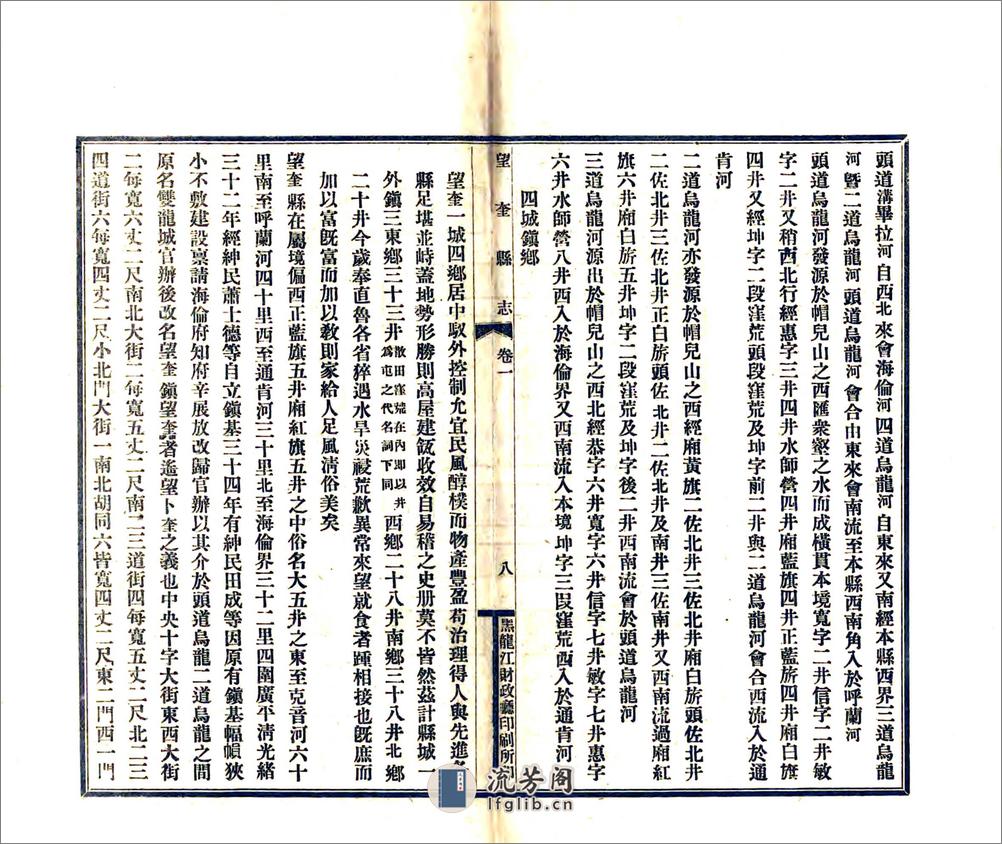 頭道溝畢拉河自西北來會海倫河四道烏龍河自東來又南經本縣西界三道烏龍
河暨二道烏龍河頭道烏龍河會合由東來會南流至本縣西南角入於呼蘭河
頭道烏龍河發源於帽兒山之西匯衆壑之水而成橫貫本境寬字二井信字二井敏
字二井又稍西北行經惠字三井四井水師營四井廂藍旗四井正藍旂四井廂白旗
四井又經坤字二段窪荒頭段窪荒及坤字前二井與二道烏龍河會合西流入於通
肯河
二道烏龍河亦發源於帽兒山之西經廂黃旗二佐北井三佐北井廂白旂頭佐北井
二佐北井三佐北井正白旂頭佐北井二佐北井及南井三佐南井又西南流過廂紅
旗六井廂白旂五井坤字二段窪荒及坤字後二井西南流會於頭道烏龍河
三道烏龍河源出於帽兒山之西北經恭字六井寬字六井信字七井敏字七井惠字
六井水師營八井西入於海倫界又西南流入本境坤字三段窪荒西入於通肯河
四城鎮鄉
望奎縣志 卷一 八 黑龍江財政廳印刷所印
望奎一城四鄉居中馭外控制允宜民風醇樸而物產豐盈苟治理得人與先進各
縣足堪並峙蓋地勢形勝則高屋建瓴收效自易稽之史册莫不皆然茲計縣城一
外鎮三東鄉三十三井散田窪荒在內即以井爲屯之代名詞下同西鄉二十八井南鄉三十八井北鄉
二十井今歲奉直魯各省猝遇水旱災祲荒歉異常來望就食者踵相接也既庶而
加以富既富而加以敎則家給人足風淸俗美矣
望奎縣在屬境偏西正藍旗五井廂紅旗五井之中俗名大五井之東至克音河六十
里南至呼蘭河四十里西至通肯河三十里北至海倫界三十二里四圍廣平淸光緒
三十二年經紳民蕭士德等自立鎮基三十四年有紳民田成等因原有鎮基幅幀狹
小不敷建設稟請海倫府知府辛展放改歸官辦以其介於頭道烏龍二道烏龍之間
原名雙龍城官辦後改名望奎鎮望奎者遙望卜奎之義也中央十字大街東西大街
二每寬六丈二尺南北大街二每寬五丈二尺南二三道街四每寬五丈二尺北二三
四道街六每寬四丈二尺小北門大街一南北胡同六皆寬四丈二尺東二門西一門
流芳阁
lfglib.cn